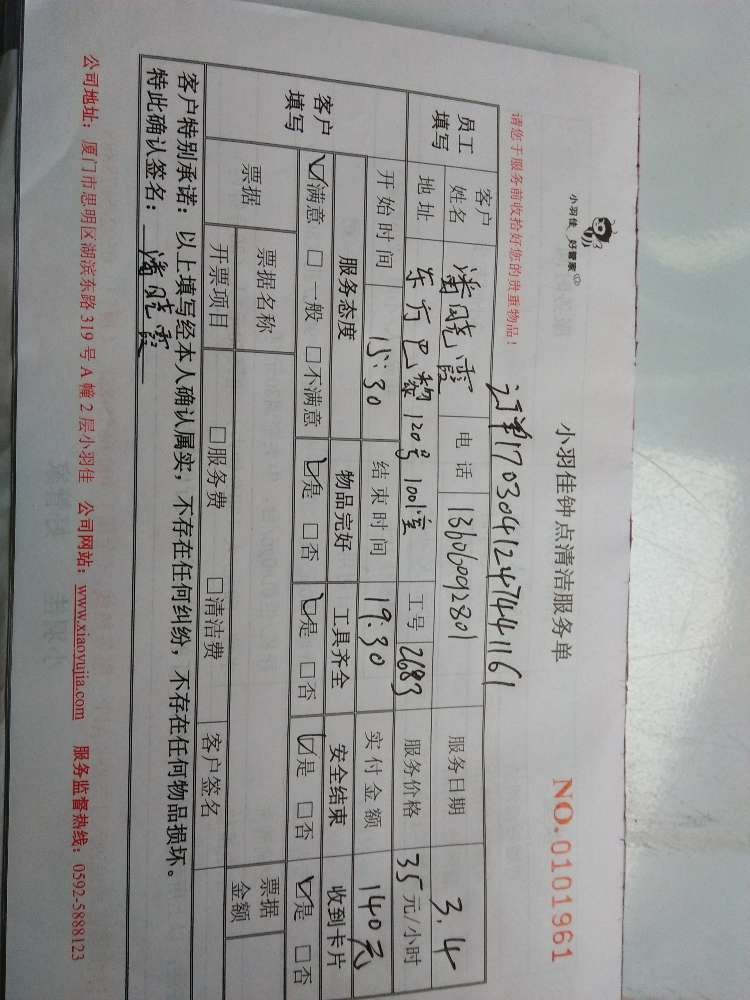 小羽佳 好管家
小羽佳钟点清洁服务单
NO.0101961
请您于服务前收拾好您的贵重物品!
订单17030412474441161
员工填写 客户姓名 潘晓霞 电话 13606092801 服务日期 3.4
地址 东方巴黎120号1001室 工号 2683 服务价格 35元/小时
客户填写 开始时间 15:30 结束时间 19:30 实付金额 140元
服务态度 物品完好 工具齐全 安全结束 收到卡片
☑满意 □一般 □不满意 ☑是 □否 ☑是 □否 ☑是 □否 ☑是 □否
票据 票据名称 票据金额
开票项目 □服务费 □清洁费 客户签名
客户特别承诺:以上填写经本人确认属实,不存在任何纠纷,不存在任何物品损坏。
特此确认签名:潘晓霞
公司地址:厦门市思明区湖滨东路319号A幢2层小羽佳 公司网站:www.xiaoyujia.com 服务监督热线:0592-5888123